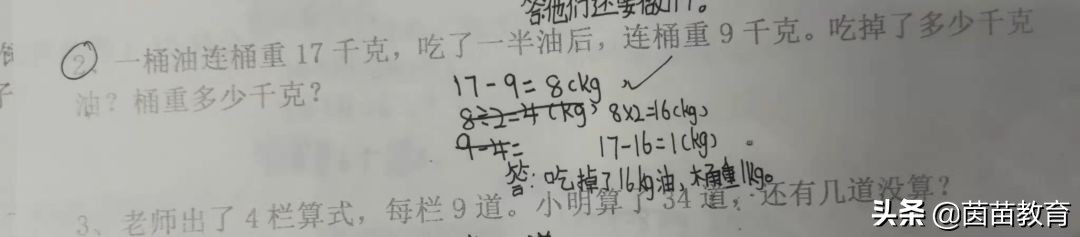 答他们还要做11个。
2、一桶油连桶重17千克，吃了一半油后，连桶重9千克。吃掉了多少千克
油？桶重多少千克？
17-9=8(kg)
8÷2=4(kg) 8×2=16(kg)
9-4= 17-16=1(kg)
答：吃掉了16kg油，桶重1kg。
3、老师出了4栏算式，每栏9道。小明算了34道，还有几道没算？
头条 @茵苗教育